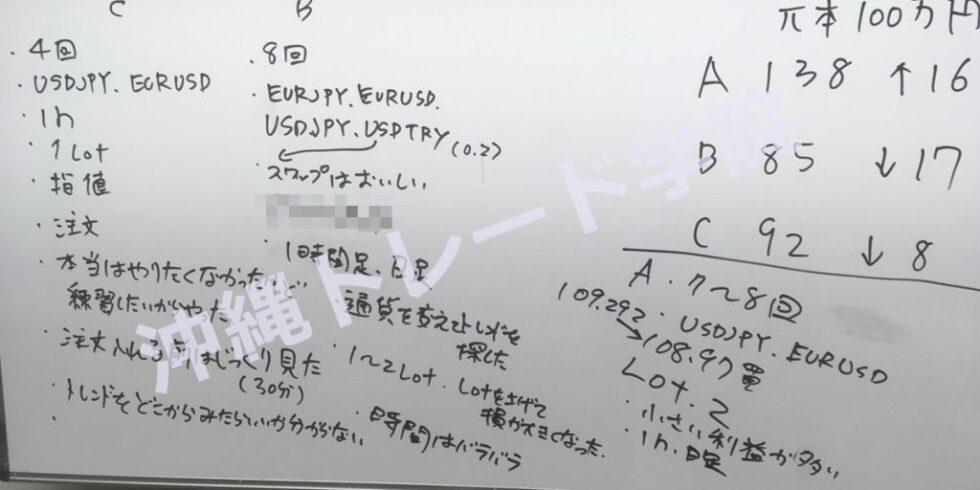 C
・4回
・USDJPY. EURUSD
・1h
・1Lot
・指値
・注文
・本当はやりたくなかった
練習したいからやった
・注文入れる前はじっくり見た
(30分)
・トレンドをどこからみたらいいか分からない
B
・8回
・EURJPY. EURUSD.
USDJPY. USDTRY(0.2)
・スワップはおいしい
・1時間足、日足
・通貨を変えてトレンドを
探した
・1〜2Lot. Lotを上げて
損が大きくなった.
・時間はバラバラ
元本100万円
A 138 ↑16
B 85 ↓17
C 92 ↓8
A.7〜8回
・USDJPY. EURUSD
109.292
108.97買
Lot. 2
・小さい利益が多い
・1h. 日足
沖縄トレード学院